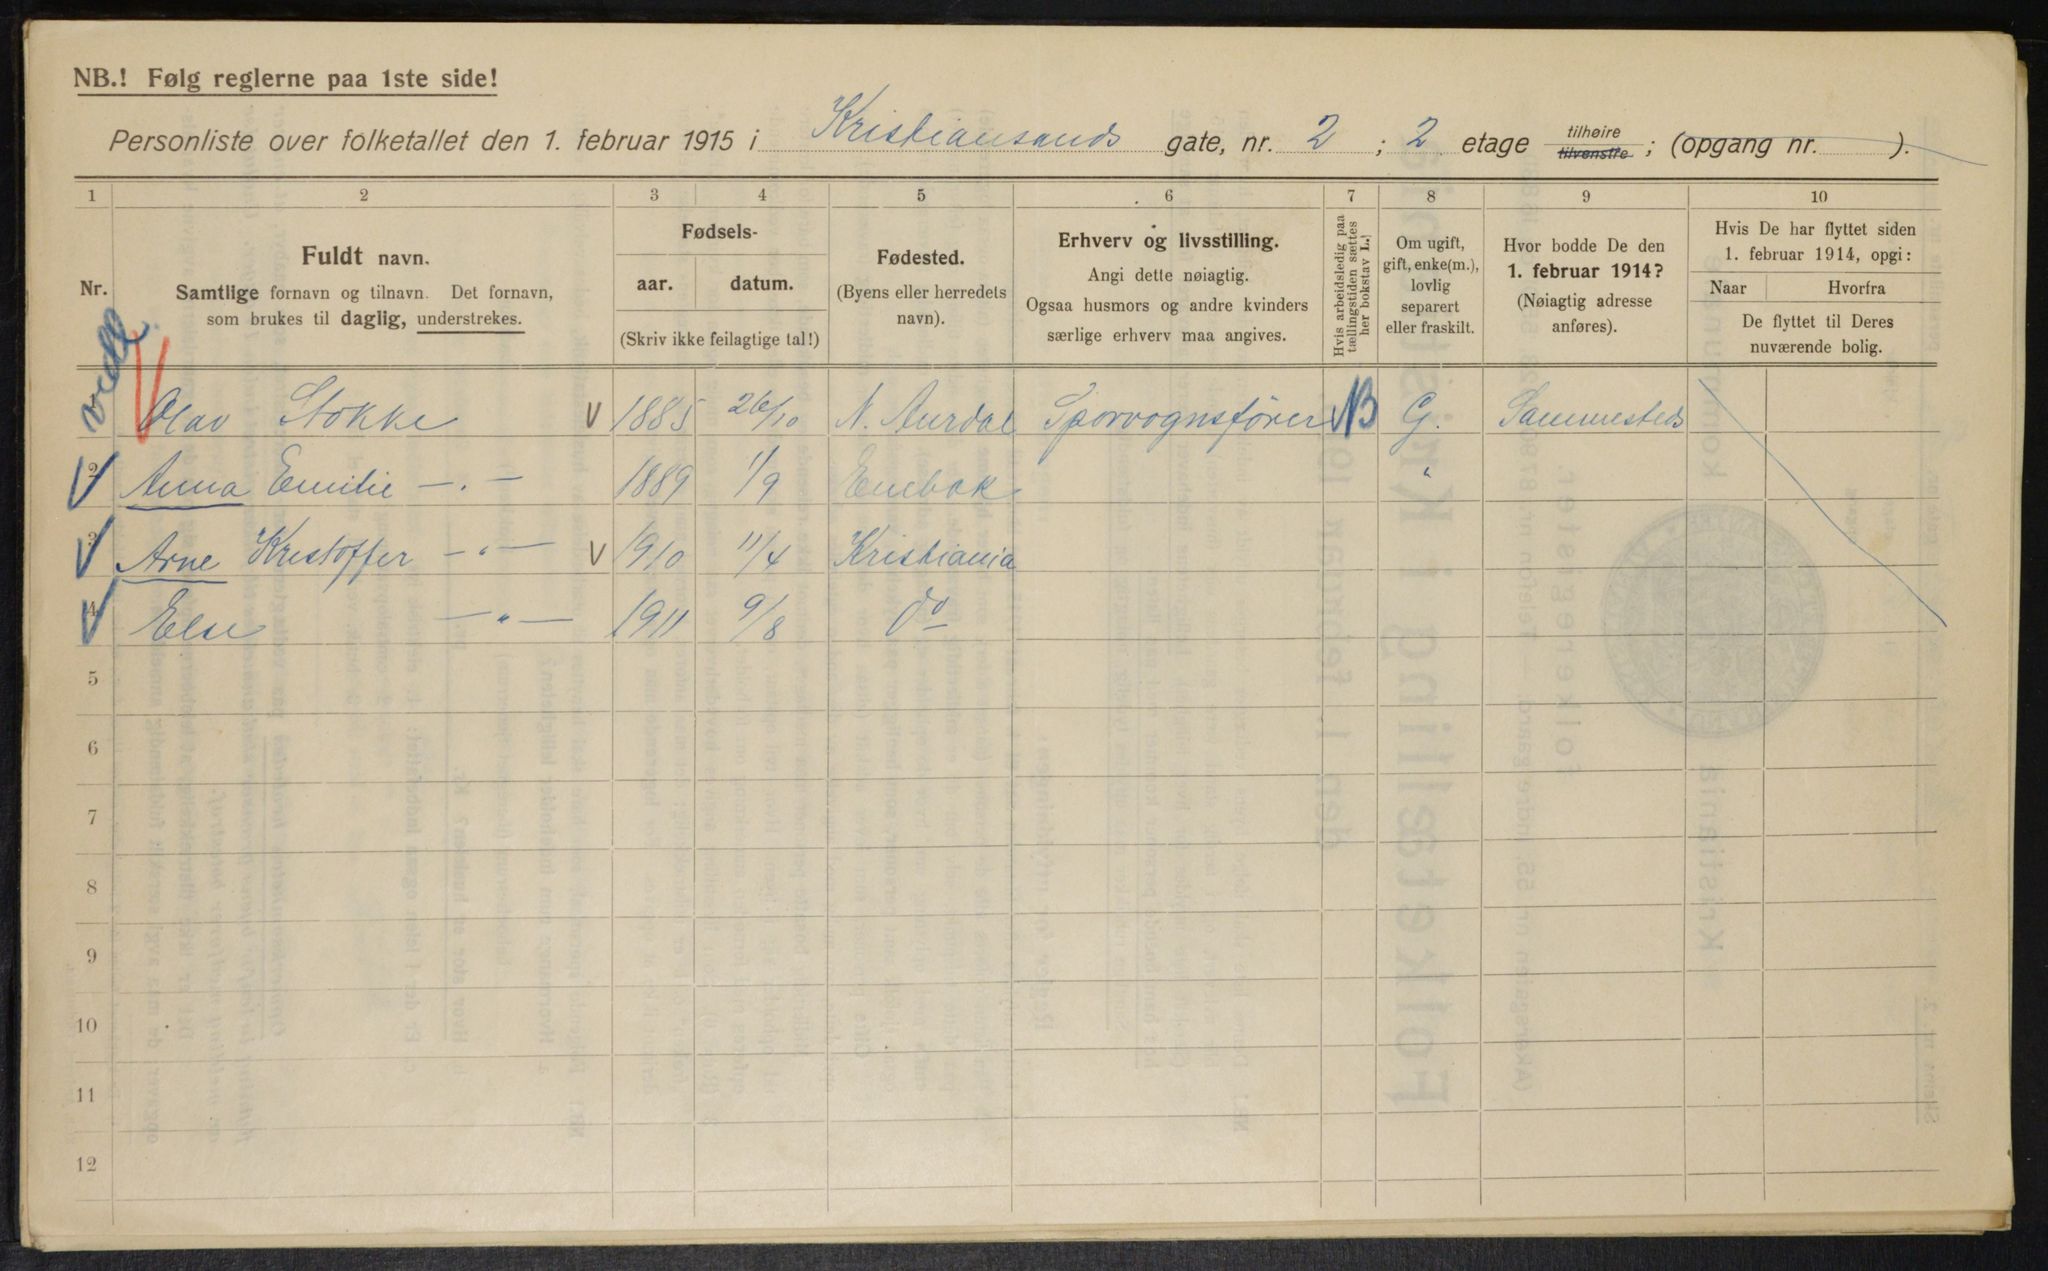 NB.! Følg reglerne paa 1ste side!
Personliste over folketallet den 1. februar 1915 i Kristiansands gate, nr. 2 ; 2 etage tilhøire tilvenstre ; (opgang nr. ).
1 2 3 4 5 6 7 8 9 10
Nr.
Fuldt navn.
Samtlige fornavn og tilnavn. Det fornavn,
som brukes til daglig, understrekes.
Fødsels-
aar. datum.
(Skriv ikke feilagtige tal!)
Fødested.
(Byens eller herredets
navn).
Erhverv og livsstilling.
Angi dette nøiagtig.
Ogsaa husmors og andre kvinders
særlige erhverv maa angives.
Hvis arbeidsledig paa
tællingstiden sættes
her bokstav L.!
Om ugift,
gift, enke(m.),
lovlig
separert
eller fraskilt.
Hvor bodde De den
1. februar 1914?
(Nøiagtig adresse
anføres).
Hvis De har flyttet siden
1. februar 1914, opgi:
Naar Hvorfra
De flyttet til Deres
nuværende bolig.
Olav Stokke V 1885 26/10 N. Aurdal Sporvognsfører NB G. Sammesteds
2 V Anna Emilie — " — 1889 1/9 Enebak "
3 V Arne Kristoffer — " — V 1910 11/4 Kristiania
4 V Else — " — 1911 9/8 do
5
6
7
8
9
10
11
12